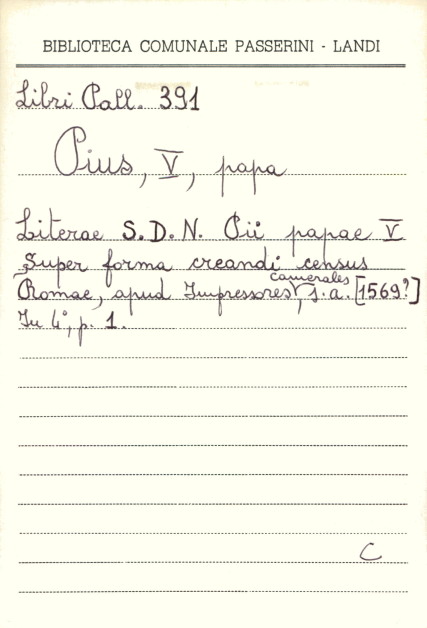 BIBLIOTECA COMUNALE PASSERINI - LANDI
Libri Pall. 391
Pius, V, papa
Literae S.D.N. Pii papae V
super forma creandi census
Romae, apud Impressores camerales, s.a. [1569?]
In 4°, p. 1.
C